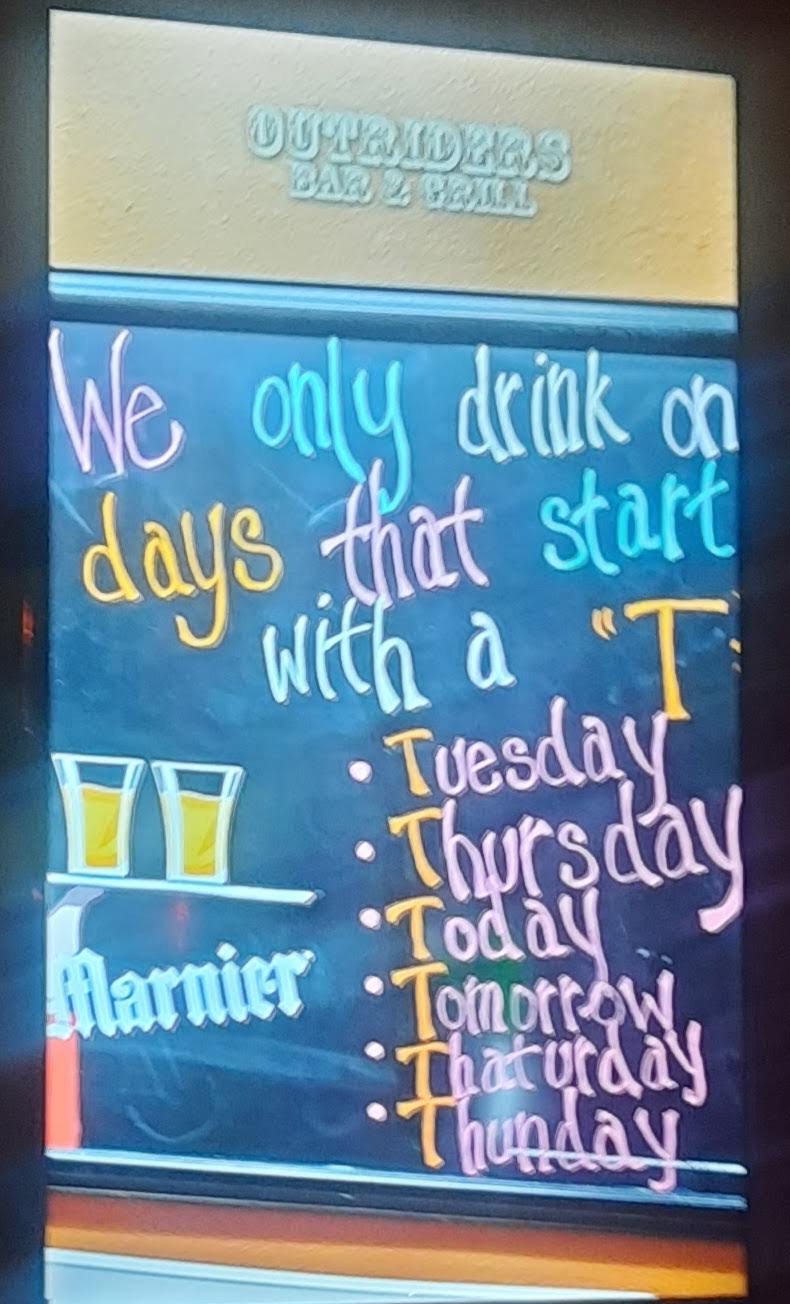 OUTRIDERS
BAR & GRILL
We only drink on
days that start
with a "T"
• Tuesday
• Thursday
• Today
• Tomorrow
• Thaturday
• Thunday
Marnier